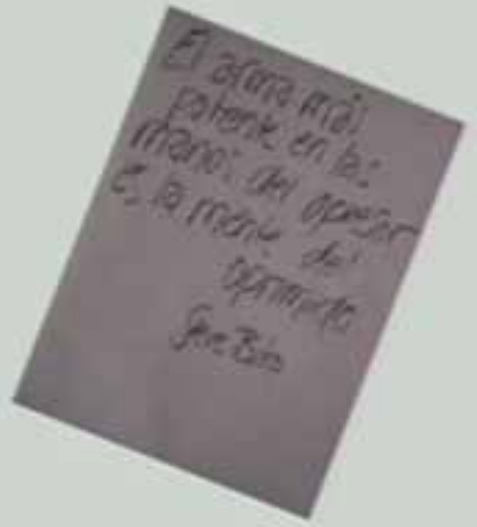 El arma más
potente en las
manos del opresor
es la mente del
oprimido
Steve Biko